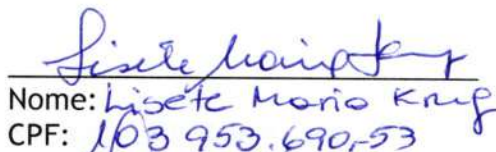 Lisete Maria Krug
Nome: Lisete Maria Krug
CPF: 103 953.690,-53